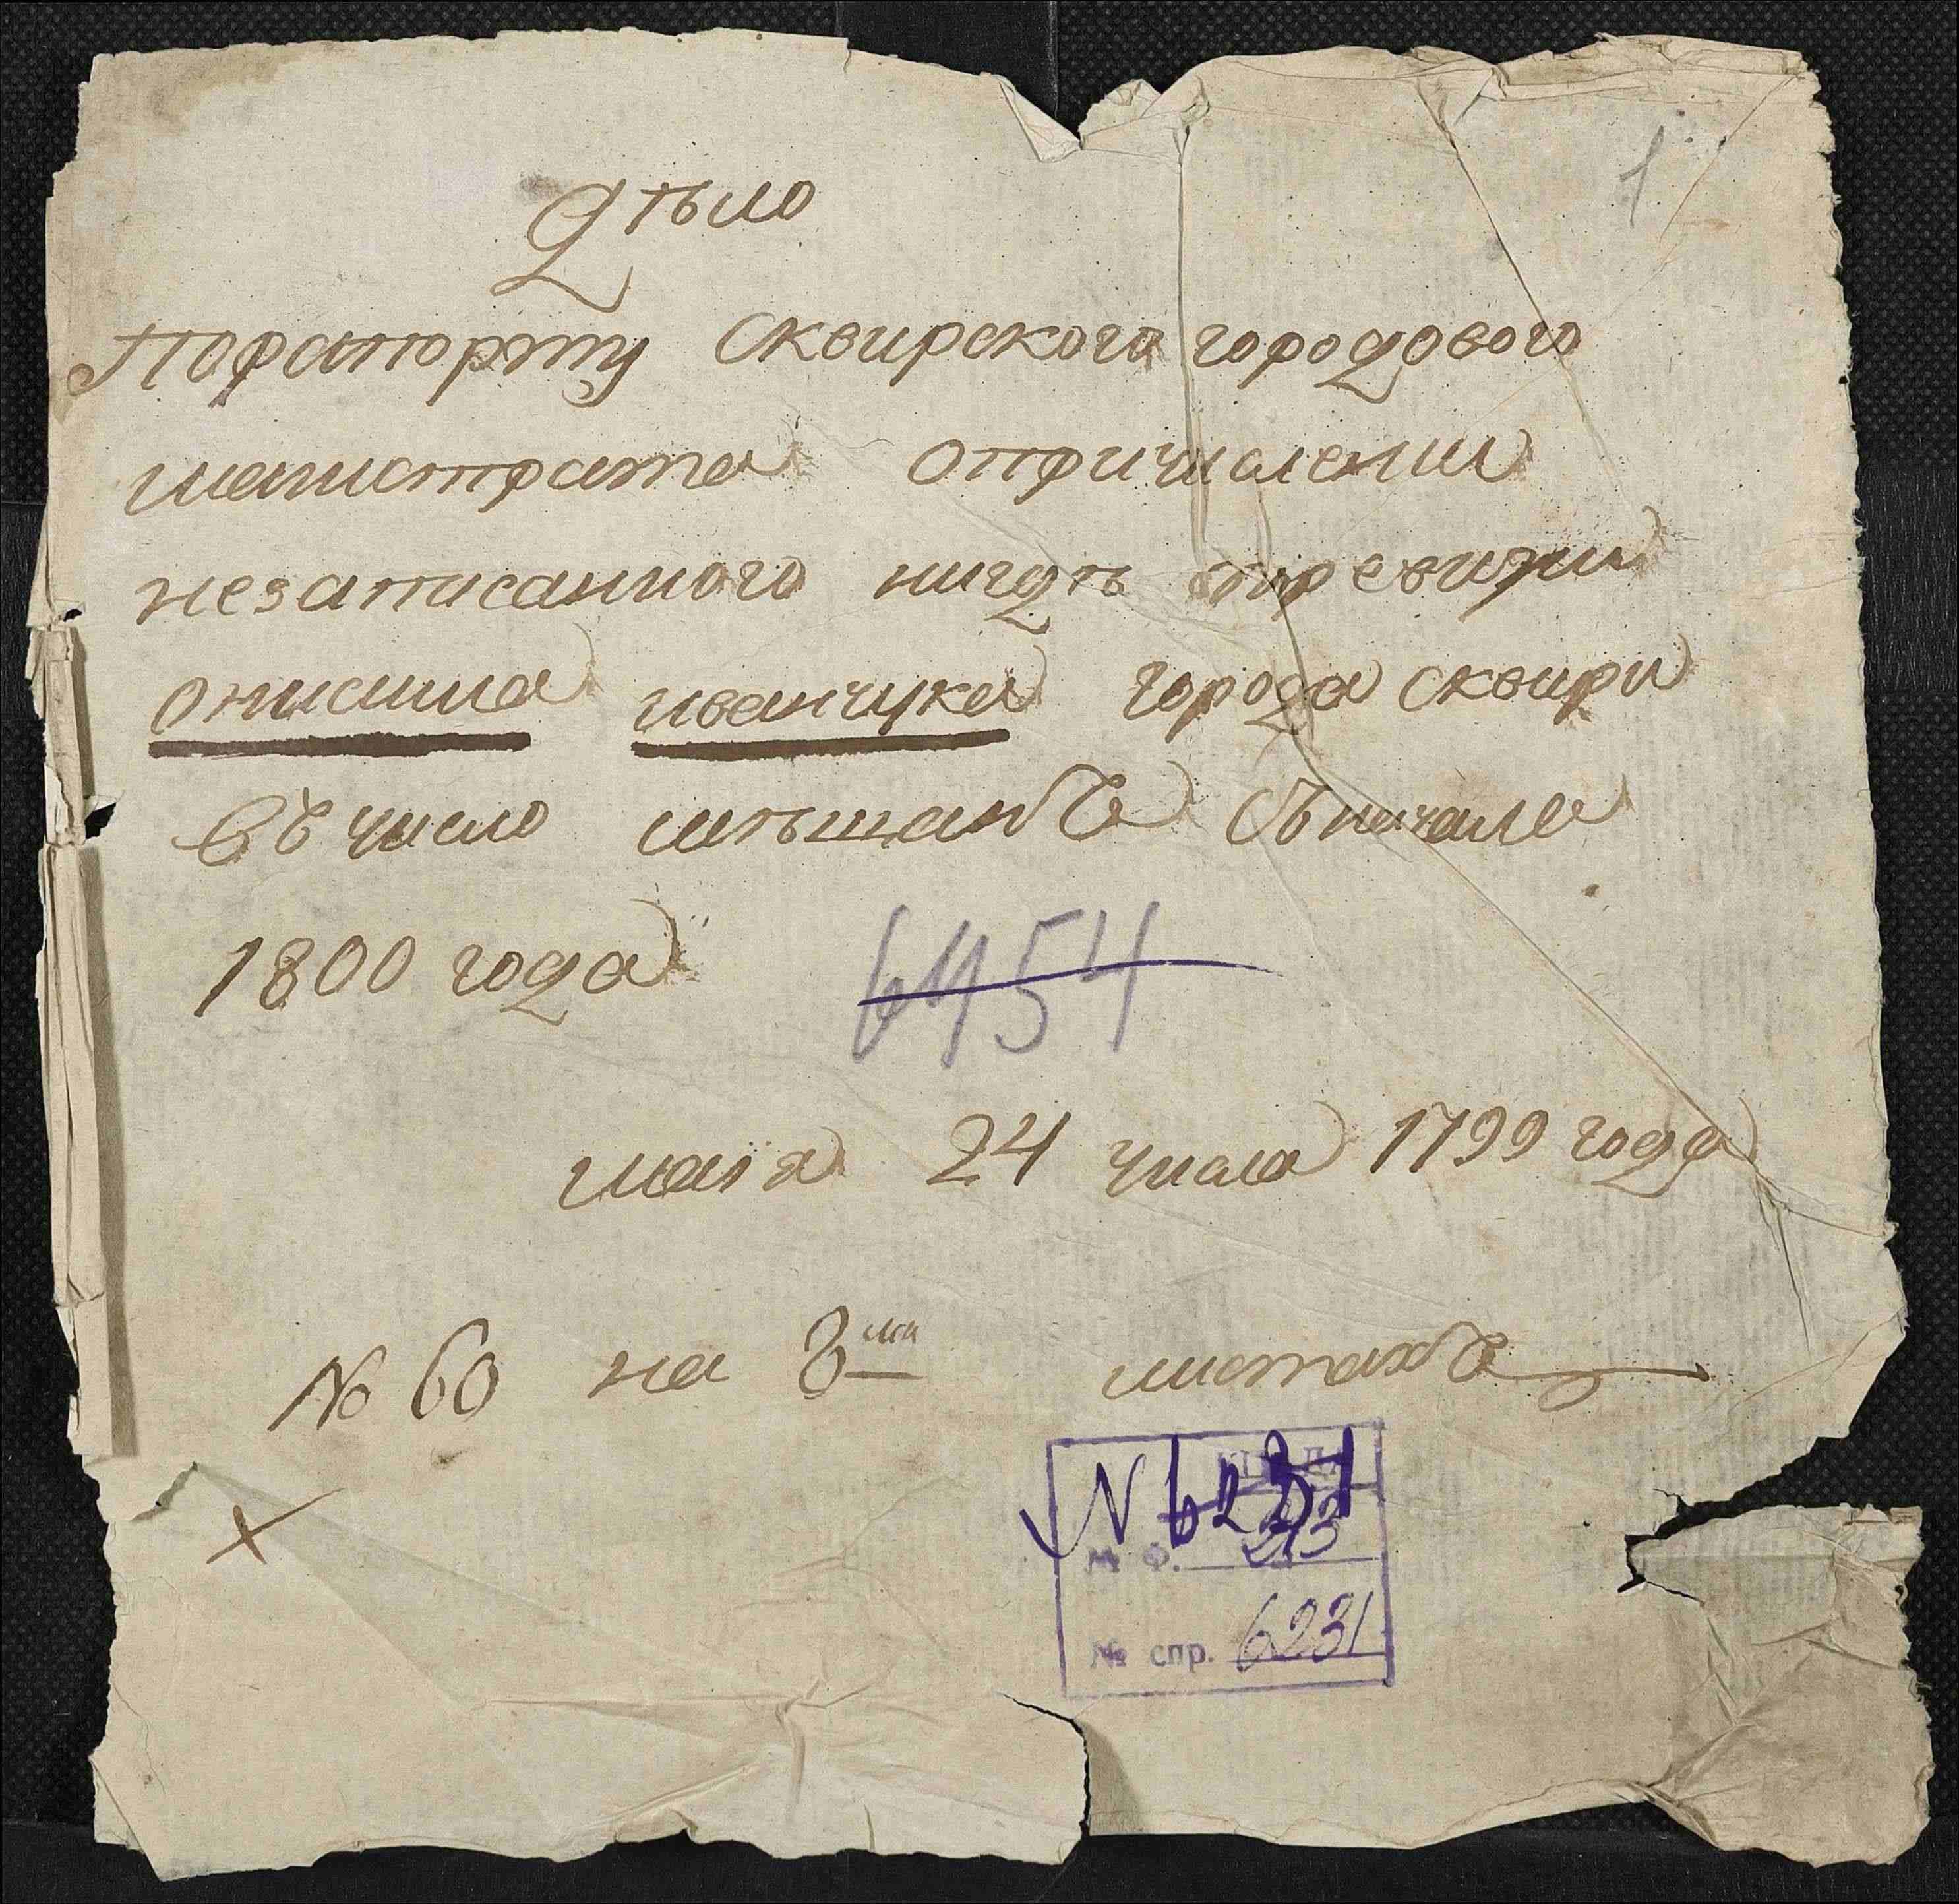 1
Дѣло
Порапорту Сквирского городового
магистрата опричислении
незаписанного нигдѣ поревизии
онисима иванчука города сквири
въ число мѣщанъ сначала
1800 года
6454
маія 24 числа 1799 года
№ 60 на 8ми листахъ
N 6231
№ Ф. 213
№ спр. 6231